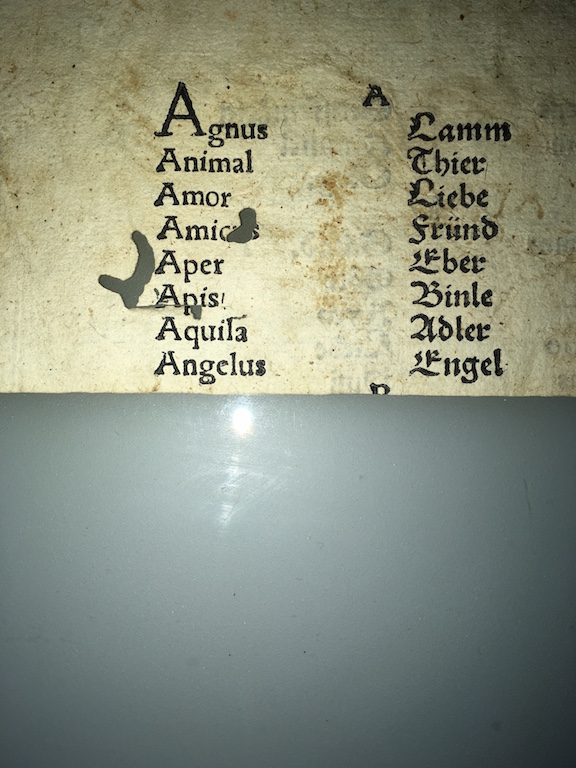 A
Agnus Lamm
Animal Thier
Amor Liebe
Fründ
Aper Eber
Apis Binle
Aquila Adler
Angelus Engel